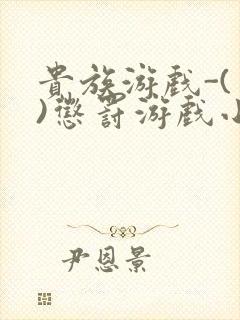 貴族游戲-(
)懲罰游戲小
尹恩景